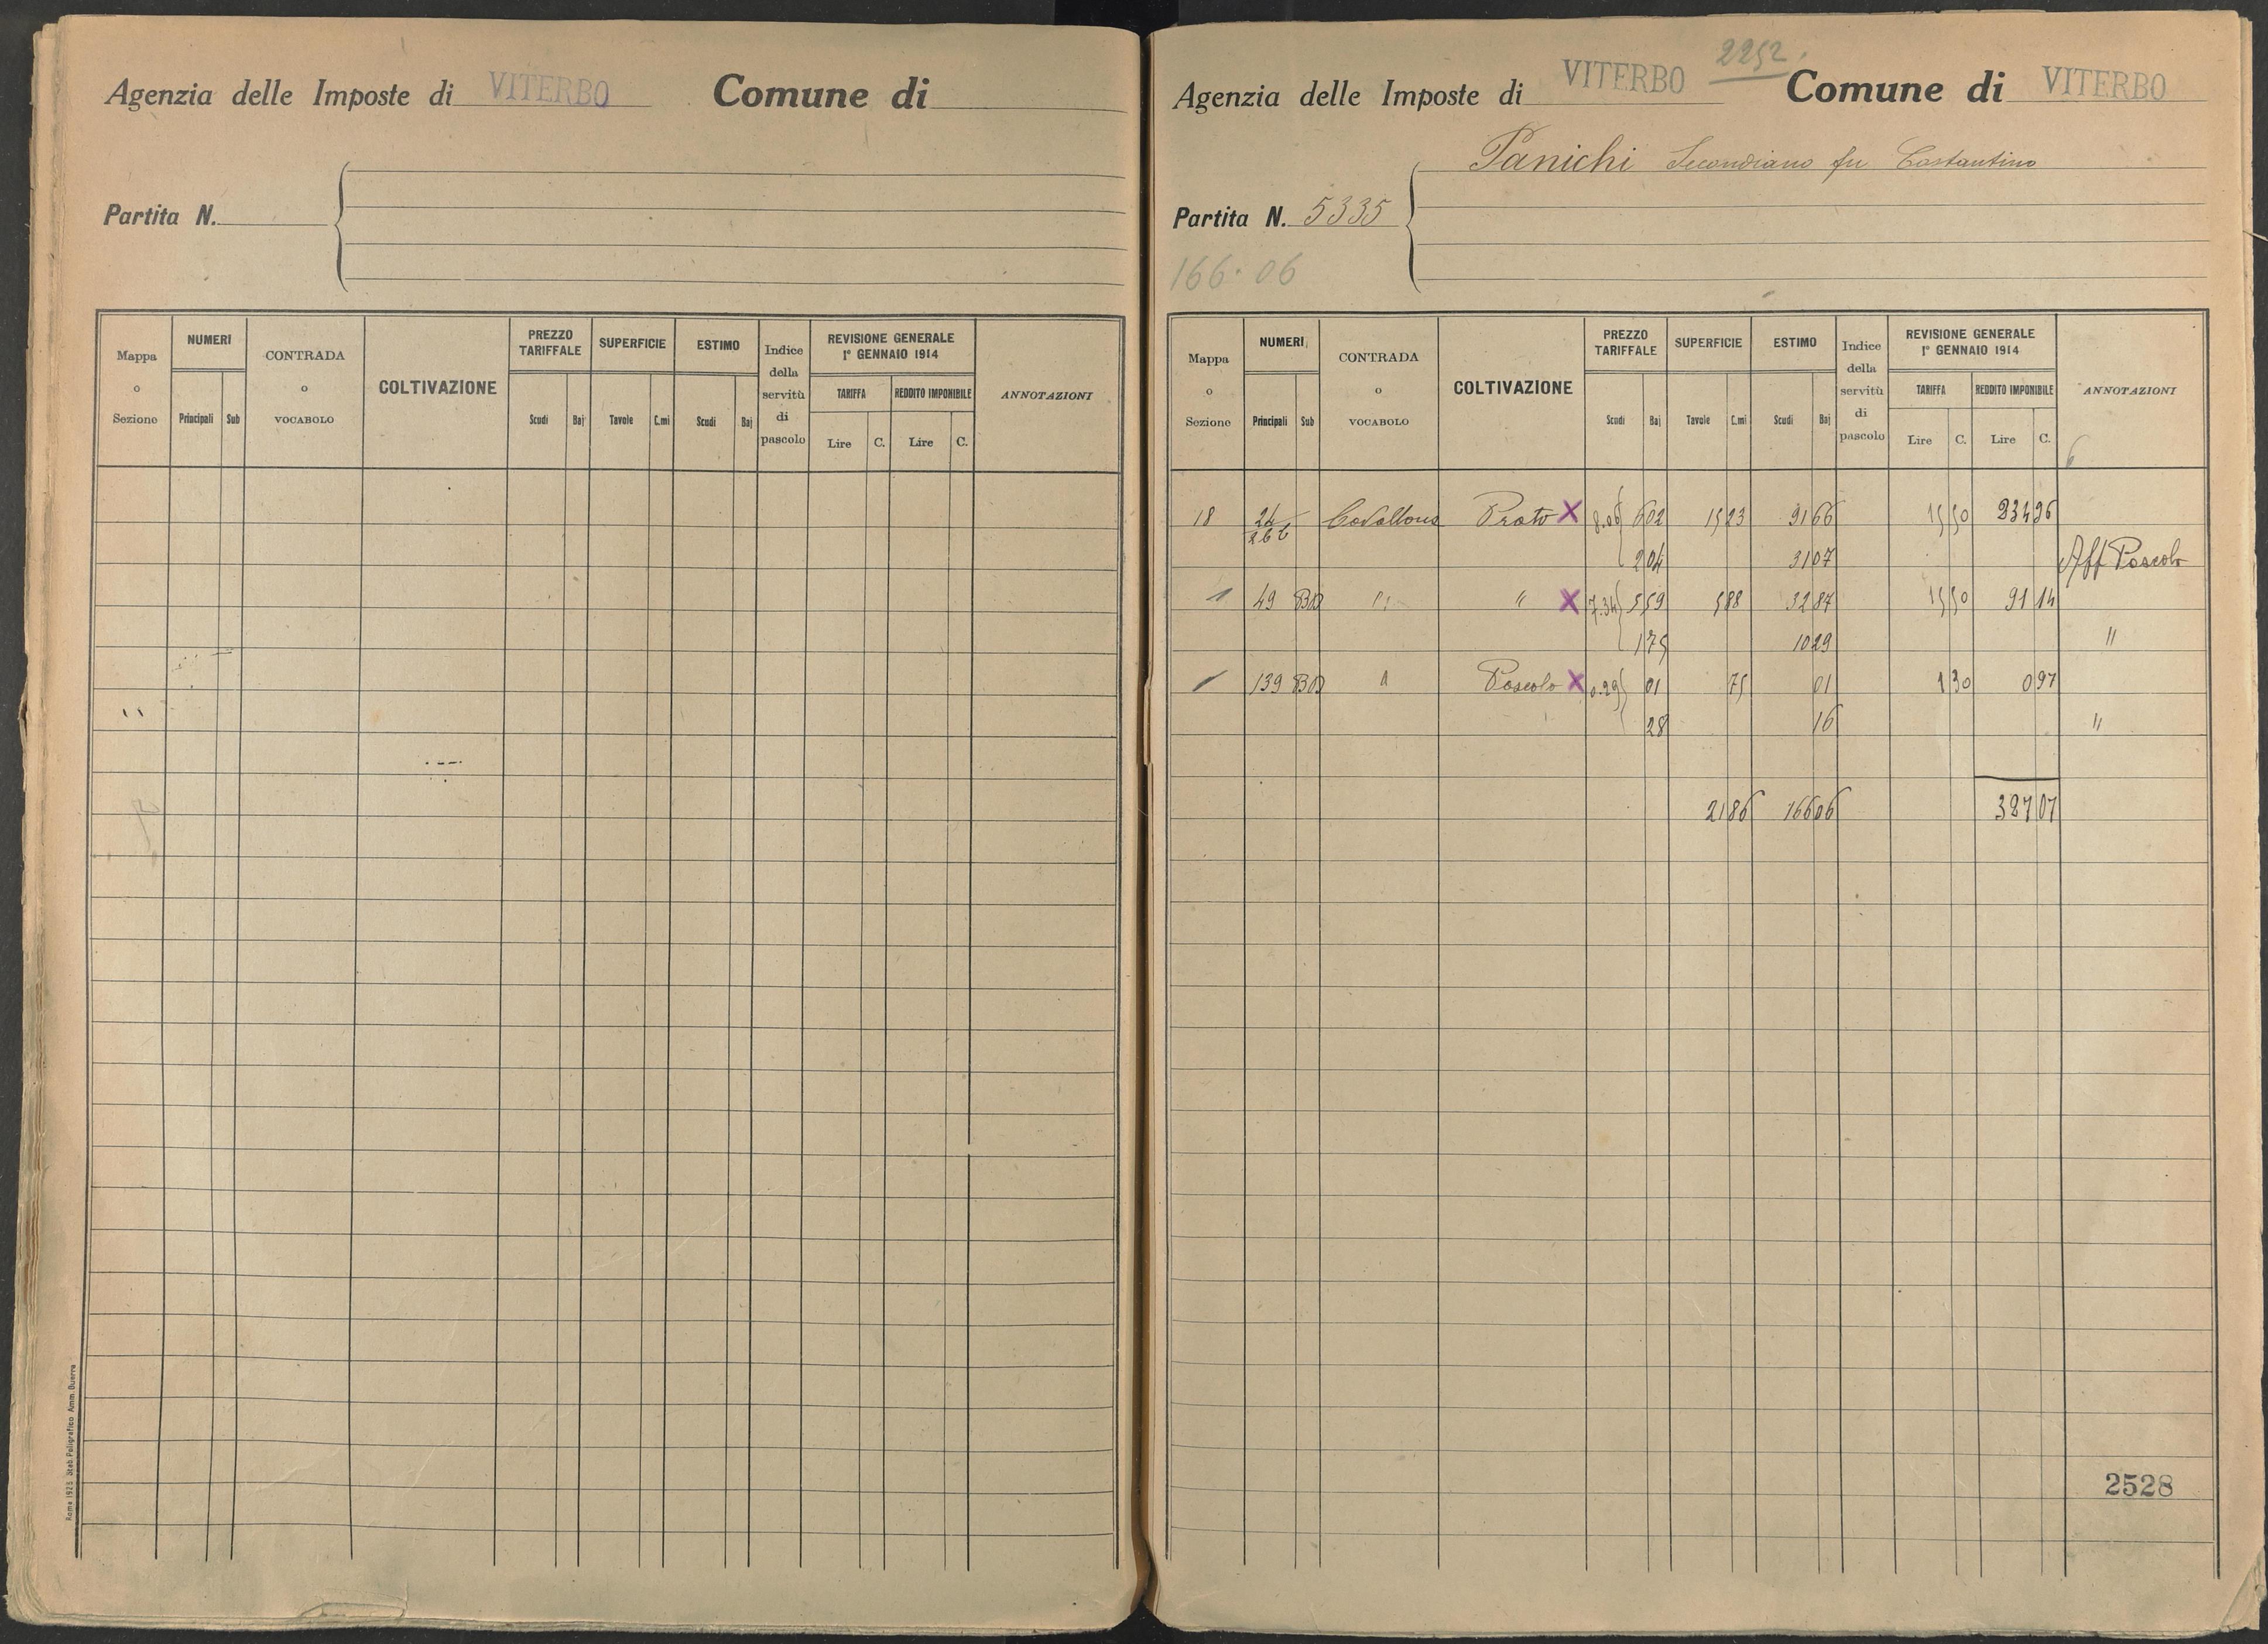 Agenzia delle Imposte di VITERBO Comune di
Partita N.
Mappa o Sezione
NUMERI
Principali Sub
CONTRADA o VOCABOLO
COLTIVAZIONE
PREZZO TARIFFALE
Scudi Baj
SUPERFICIE
Tavole C.mi
ESTIMO
Scudi Baj
Indice della servitù di pascolo
REVISIONE GENERALE
1° GENNAIO 1914
TARIFFA REDDITO IMPONIBILE
Lire C. Lire C.
ANNOTAZIONI
Roma 1925 Stab. Poligrafico Amm. Guerra
2252.
Agenzia delle Imposte di VITERBO Comune di VITERBO
Panichi Secondiano fu Costantino
Partita N. 5335
166.06
Mappa o Sezione
NUMERI
Principali Sub
CONTRADA o VOCABOLO
COLTIVAZIONE
PREZZO TARIFFALE
Scudi Baj
SUPERFICIE
Tavole C.mi
ESTIMO
Scudi Baj
Indice della servitù di pascolo
REVISIONE GENERALE
1° GENNAIO 1914
TARIFFA REDDITO IMPONIBILE
Lire C. Lire C.
ANNOTAZIONI
18 Prato X 8.06 6 02 15 23 91 66 15 50 234 96
2 04 31 07 Aff Pascolo
49 " X 7.34 5 59 5 88 32 87 15 50 91 14
1 75 10 29 "
139 " Pascolo X 0.29 01 75 01 1 30 0 97
28 16 "
21 86 166 06 327 07
2528